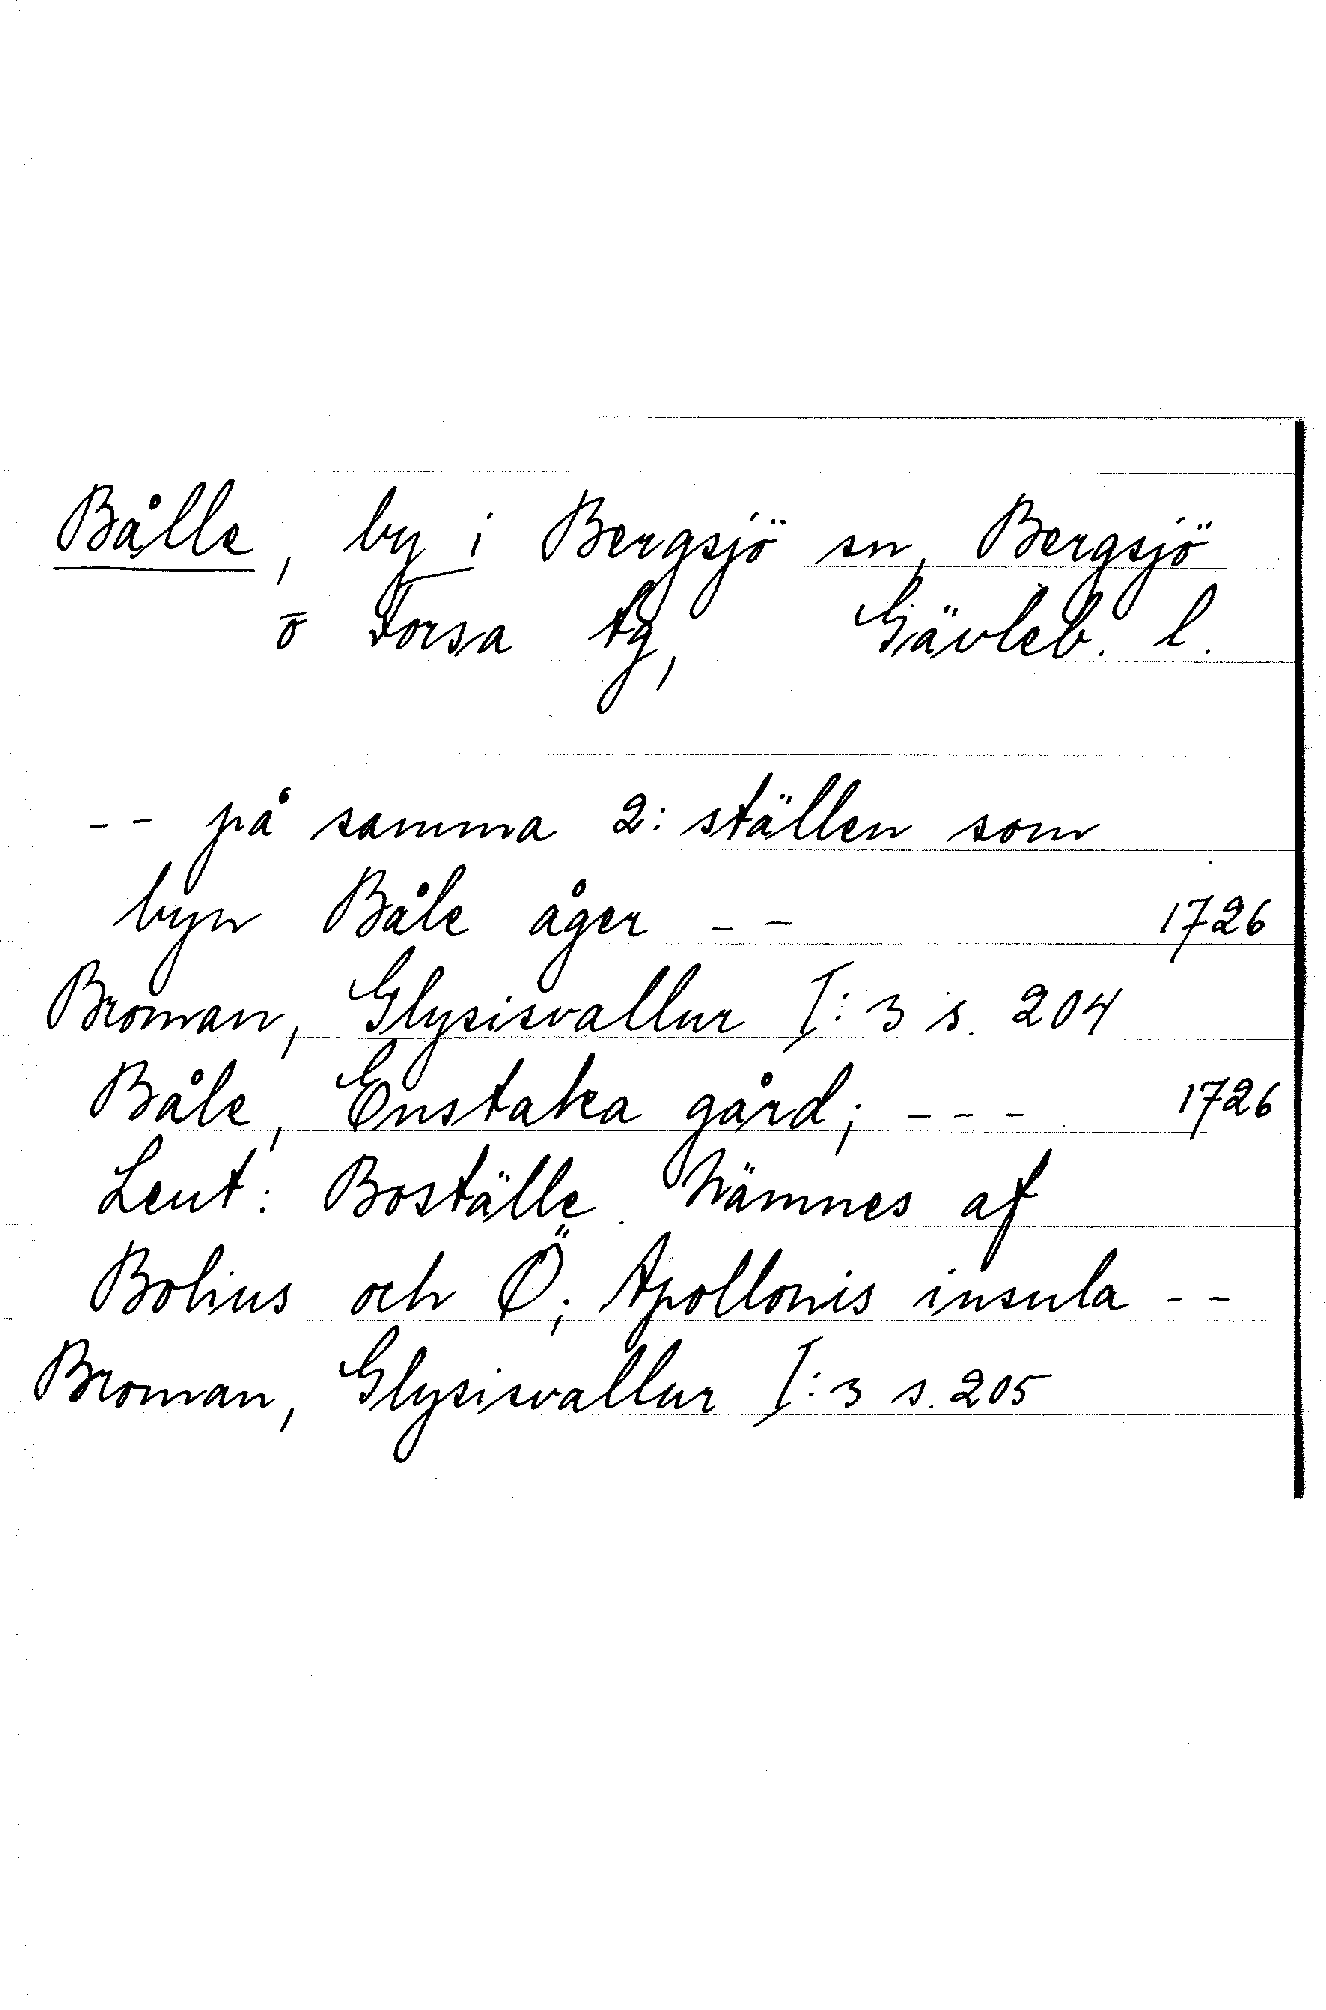 Bålle, by i Bergsjö sn, Bergsjö
o Forsa tg, Gävleb. l.
-- på samma 2: ställen som
byn Båle åger -- 1726
Broman, Glysisvallur I:3 s. 204
Båle, Enstaka gård; --- 1726
Leut: Boställe. Nämnes af
Bolius och Ö; Apollonis insula --
Broman, Glysisvallur I:3 s. 205